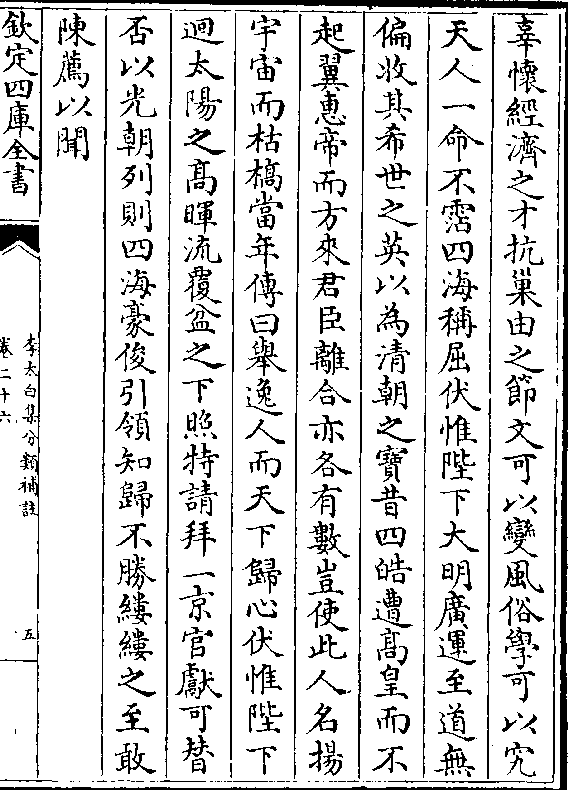 辜懷經濟之才抗巢由之節文可以變風俗學可以究
天人一命不霑四海稱屈伏惟陛下大明廣運至道無
偏收其希世之英以為清朝之寶昔四皓遭髙皇而不
起翼恵帝而方來君臣離合亦各有數豈使此人名揚
宇宙而枯槁當年傳曰舉逸人而天下歸心伏惟陛下
迴太陽之髙暉流覆盆之下照特請拜一京官獻可替
否以光朝列則四海豪俊引領知歸不勝縷縷之至敢
陳薦以聞
欽定四庫全書
李太白集分類補註
卷二十六
五